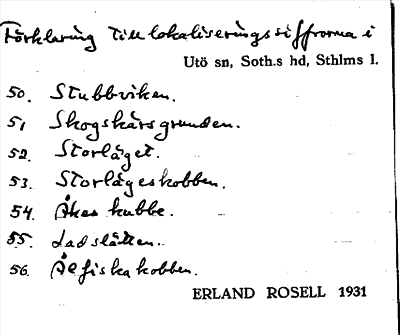 Förklaring till lokaliseringssiffrorna i
Utö sn, Soth.s hd, Sthlms l.
50. Stubbviken.
51 Skogskärsgrunden.
52. Storläget.
53. Storlägeskobben.
54. Åkes kubbe.
55. Ladslätten.
56. Ålfiskakobben.
ERLAND ROSELL 1931